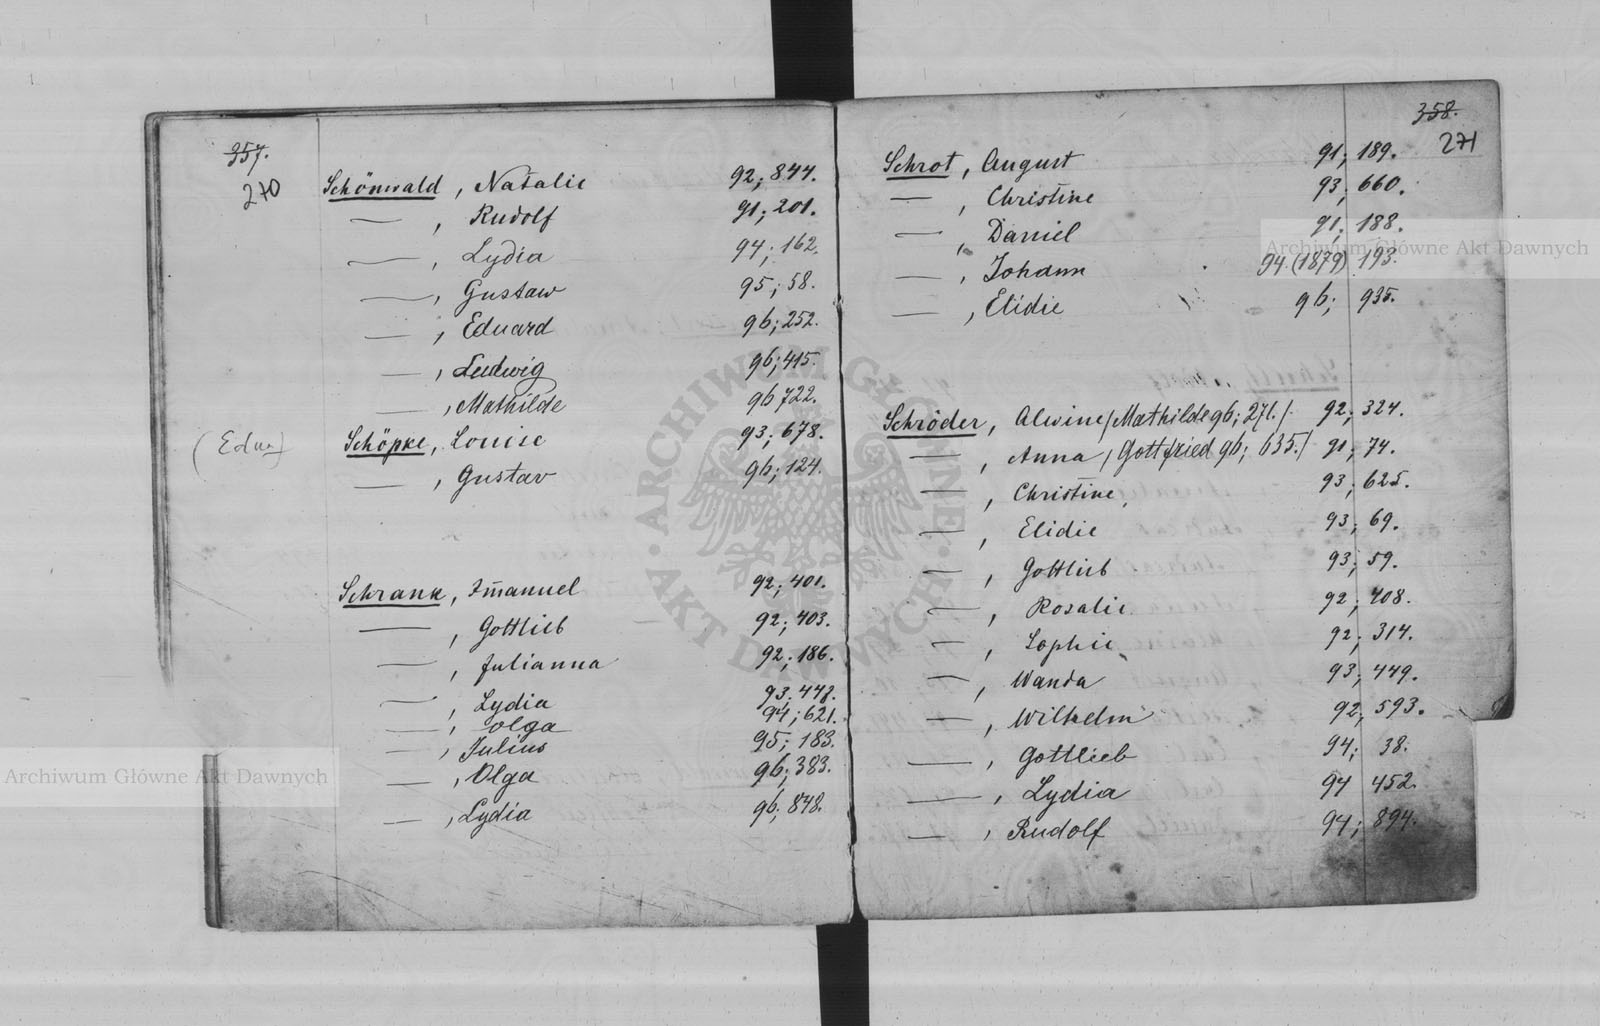 357.
270
Schönwald, Natalie 92; 844.
— , Rudolf 91; 201.
— , Lydia 94; 162.
— , Gustaw 95; 58.
— , Eduard 96; 252.
— , Ludwig 96; 415.
— , Mathilde 96 722.
(Edu
Schöpke, Louise 93; 678.
— , Gustav 96; 124.
Schrank, Immanuel 92; 401.
— , Gottlieb 92; 403.
— , Julianna 92; 186.
— , Lydia 93. 448.
— , Olga 94; 621.
— , Julius 95; 183.
— , Olga 96; 383.
— , Lydia 96; 848.
358.
271
Schrot, August 91; 189.
— , Christine 93; 660.
— , Daniel 91; 188.
— , Johann 94. (1879) 193.
— , Elidie 96; 935.
Schröder, Alwine /Mathilde 96; 271./ 92; 324.
— , Anna /Gottfried 96; 635./ 91; 74.
— , Christine, 93; 625.
— , Elidie 93; 69.
— , Gottlieb 93; 59.
— , Rosalie 92; 408.
— , Sophie 92; 314.
— , Wanda 93; 449.
— , Wilhelm 92; 593.
— , Gottlieb 94; 38.
— , Lydia 94 452.
— , Rudolf 94; 894.
Archiwum Główne Akt Dawnych
Archiwum Główne Akt Dawnych
ARCHIWUM GŁÓWNE AKT DAWNYCH